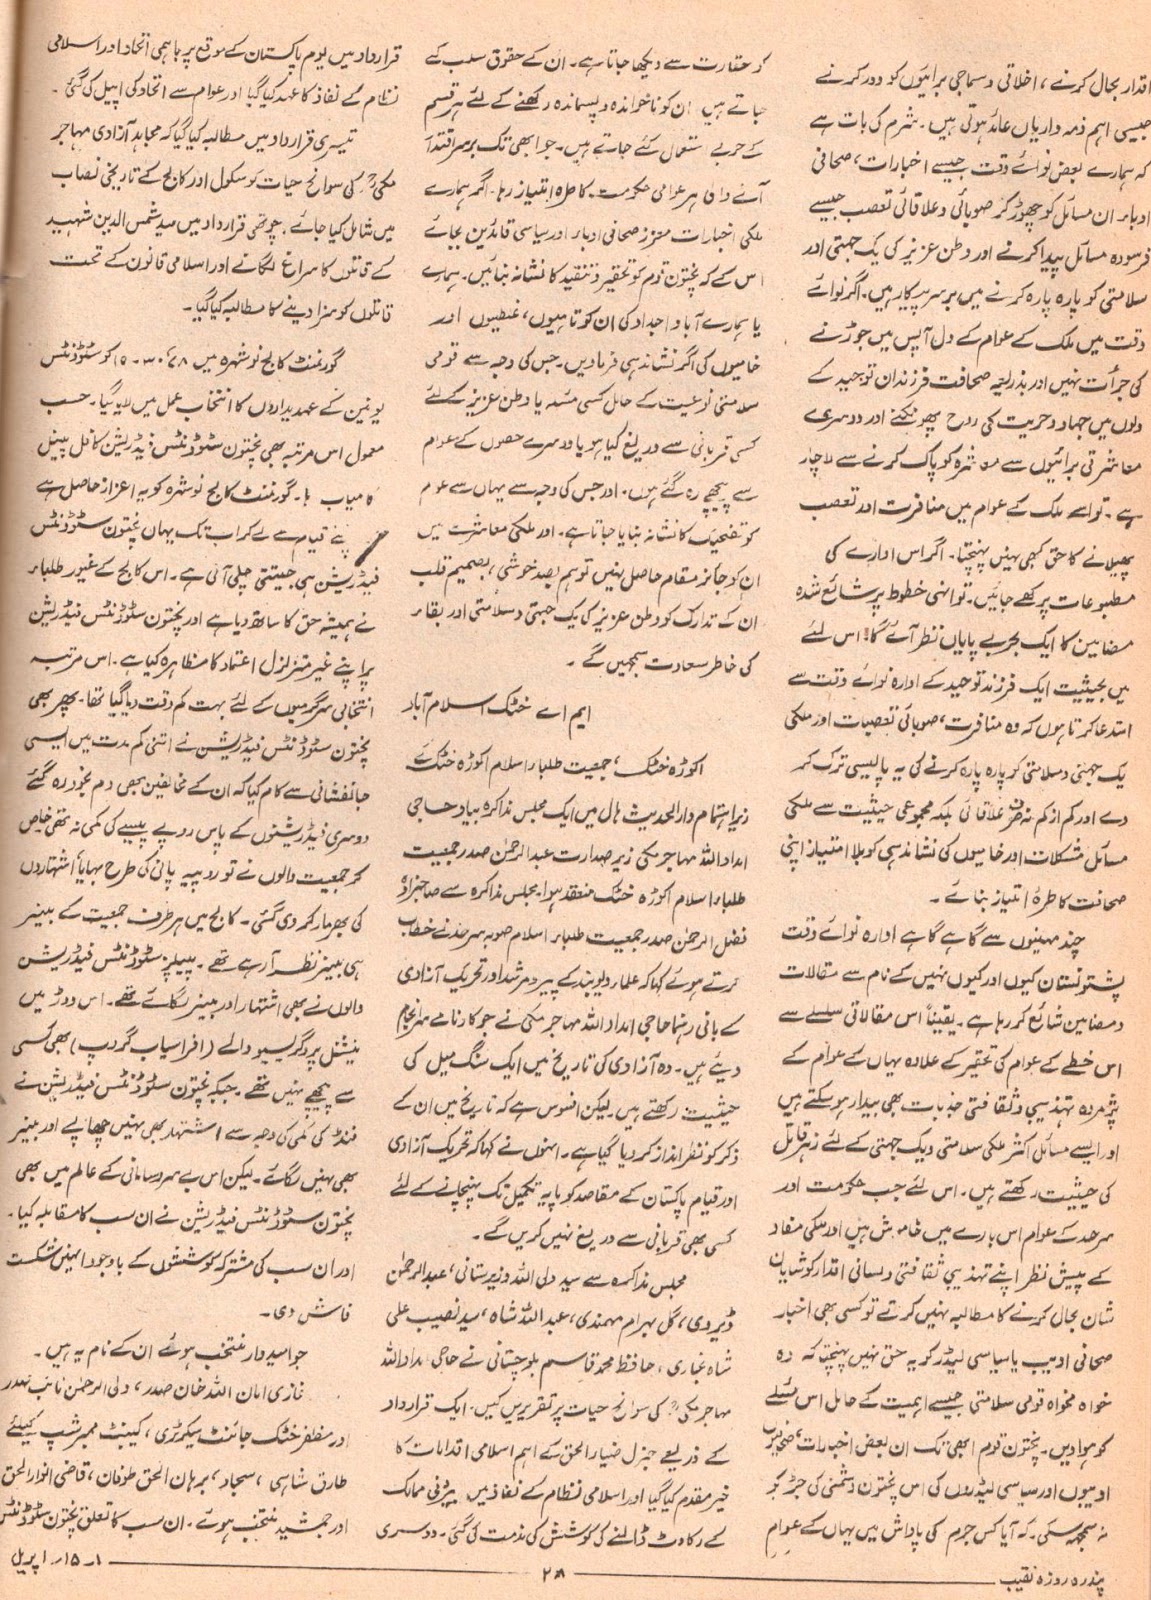 اقدار بحال کرنے، اخلاقی و سماجی برائیوں کو دور کرنے
جیسی اہم ذمہ داریاں عائد ہوتی ہیں۔ شرم کی بات ہے
کہ ہمارے بعض نوائے وقت جیسے اخبارات، صحافی
ادباء ان مسائل کو چھوڑ کر صوبائی و علاقائی تعصب جیسے
فرسودہ مسائل پیدا کرنے اور وطن عزیز کی یک جہتی اور
سلامتی کو پارہ پارہ کرنے میں برسر پیکار ہیں۔ اگر نوائے
وقت میں ملک کے عوام کے دل آپس میں جوڑنے
کی جرأت نہیں اور بذریعہ صحافت فرزندان توحید کے
دلوں میں جہاد و حریت کی روح پھونکنے اور دوسری
معاشرتی برائیوں سے معاشرہ کو پاک کرنے سے لاچار
ہے۔ تو اسے ملک کے عوام میں منافرت اور تعصب
پھیلانے کا حق کبھی نہیں پہنچتا۔ اگر اس ادارے کی
مطبوعات پرکھے جائیں۔ تو انہی خطوط پر شائع شدہ
مضامین کا ایک بحر بے پایاں نظر آئے گا! اس لئے
میں بحیثیت ایک فرزند توحید کے ادارہ نوائے وقت سے
استدعا کرتا ہوں کہ وہ منافرت، صوبائی تعصبات اور ملکی
یک جہتی و سلامتی کو پارہ پارہ کرنے کی یہ پالیسی ترک کر
دے اور کم از کم نہ صرف علاقائی بلکہ مجموعی حیثیت سے ملکی
مسائل مشکلات اور خامیوں کی نشاندہی کو بلا امتیاز اپنی
صحافت کا طرۂ امتیاز بنائے۔
چند مہینوں سے گاہے گاہے ادارہ نوائے وقت
پشتونستان کیوں اور کیوں نہیں کے نام سے مقالات
و مضامین شائع کر رہا ہے۔ یقیناً اس مقالاتی سلسلے سے
اس خطے کے عوام کی تحقیر کے علاوہ یہاں کے عوام کے
پژمردہ تہذیبی و ثقافتی جذبات بھی بیدار ہو سکتے ہیں
اور ایسے مسائل اکثر ملکی سلامتی و یک جہتی کے لئے زہر قاتل
کی حیثیت رکھتے ہیں۔ اس لئے جب حکومت اور
سرحد کے عوام اس بارے میں خاموش ہیں اور ملکی مفاد
کے پیش نظر اپنے تہذیبی ثقافتی و لسانی اقدار کو شایان
شان بحال کرنے کا مطالبہ نہیں کرتے تو کسی بھی اخبار
صحافی ادیب یا سیاسی لیڈر کو یہ حق نہیں پہنچتا کہ وہ
خواہ مخواہ قومی سلامتی جیسے اہمیت کے حامل اس مسئلے
کو ہوا دیں۔ پختون قوم ابھی تک ان بعض اخبارات، صحافیوں
ادیبوں اور سیاسی لیڈروں کی اس پختون دشمنی کی جڑ کو
نہ سمجھ سکی۔ کہ آیا کس جرم کی پاداش میں یہاں کے عوام
کو حقارت سے دیکھا جاتا ہے۔ ان کے حقوق سلب کئے
جاتے ہیں ان کو ناخواندہ و پسماندہ رکھنے کے لئے ہر قسم
کے حربے استعمال کئے جاتے ہیں۔ جو ابھی تک برسر اقتدار
آنے والی ہر عوامی حکومت کا طرہ امتیاز رہا۔ اگر ہمارے
ملکی اخبارات معزز صحافی ادباء اور سیاسی قائدین بجائے
اس کے کہ پختون قوم کو تحقیر و تنقید کا نشانہ بنائیں۔ ہمارے
یا ہمارے آباو اجداد کی ان کوتاہیوں، غلطیوں اور
خامیوں کی اگر نشاندہی فرما دیں۔ جس کی وجہ سے قومی
سلامتی نوعیت کے حامل کسی مسئلہ یا وطن عزیز کے لئے
کسی قربانی سے دریغ کیا ہو یا دوسرے حصوں کے عوام
سے پیچھے رہ گئے ہوں۔ اور جس کی وجہ سے یہاں سے عوام
کو تضحیک کا نشانہ بنایا جاتا ہے۔ اور ملکی معاشرت میں
ان کو جائز مقام حاصل نہیں تو ہم بصد خوشی، بصمیم قلب
ان کے تدارک کو وطن عزیز کی یک جہتی و سلامتی اور بقاء
کی خاطر سعادت سمجھیں گے۔
ایم اے خٹک اسلام آباد
اکوڑہ خٹک، جمعیت طلباء اسلام اکوڑہ خٹک کے
زیر اہتمام دارالحدیث ہال میں ایک مجلس مذاکرہ بیاد حاجی
امداد اللہ مہاجر مکی زیر صدارت عبدالرحمٰن صدر جمعیت
طلباء اسلام اکوڑہ خٹک منعقد ہوا۔ مجلس مذاکرہ سے صاحبزادہ
فضل الرحمٰن صدر جمعیت طلباء اسلام صوبہ سرحد نے خطاب
کرتے ہوئے کہا کہ علماء دیوبند کے پیر و مرشد اور تحریک آزادی
کے بانی رہنما حاجی امداد اللہ مہاجر مکی نے جو کارنامے سرانجام
دیئے ہیں۔ وہ آزادی کی تاریخ میں ایک سنگ میل کی
حیثیت رکھتے ہیں۔ لیکن افسوس ہے کہ تاریخ میں ان کے
ذکر کو نظر انداز کر دیا گیا ہے۔ انہوں نے کہا کہ تحریک آزادی
اور قیام پاکستان کے مقاصد کو پایہ تکمیل تک پہنچانے کے لئے
کسی بھی قربانی سے دریغ نہیں کریں گے۔
مجلس مذاکرہ سے سید ولی اللہ وزیرستانی، عبدالرحمٰن
ڈیروی، گل بہرام مہمندی، عبداللہ شاہ، سید نصیب علی
شاہ غباری، حافظ محمد قاسم بلوچستانی نے حاجی امداد اللہ
مہاجر مکیؒ کی سوانح حیات پر تقریریں کیں۔ ایک قرارداد
کے ذریعے جنرل ضیاء الحق کے اہم اسلامی اقدامات کا
خیر مقدم کیا گیا اور اسلامی نظام کے نفاذ میں بیرونی ممالک
کے رکاوٹ ڈالنے کی کوشش کی مذمت کی گئی۔ دوسری
قرارداد میں یوم پاکستان کے موقع پر باہمی اتحاد اور اسلامی
نظام کے نفاذ کا عہد کیا گیا اور عوام سے اتحاد کی اپیل کی گئی۔
تیسری قرارداد میں مطالبہ کیا گیا کہ مجاہد آزادی مہاجر
مکیؒ کی سوانح حیات کو سکول اور کالج کے تاریخی نصاب
میں شامل کیا جائے۔ چوتھی قرارداد میں سید شمس الدین شہید
کے قاتلوں کا سراغ لگانے اور اسلامی قانون کے تحت
قاتلوں کو سزا دینے کا مطالبہ کیا گیا۔
گورنمنٹ کالج نوشہرہ میں ۷۸-۳-۱۵ کو سٹوڈنٹس
یونین کے عہدیداروں کا انتخاب عمل میں لایا گیا۔ حسب
معمول اس مرتبہ بھی پختون سٹوڈنٹس فیڈریشن کا فل پینل
کامیاب رہا۔ گورنمنٹ کالج نوشہرہ کو یہ اعزاز حاصل ہے
اپنے قیام سے لے کر اب تک یہاں پختون سٹوڈنٹس
فیڈریشن ہی جیتتی چلی آئی ہے۔ اس کالج کے غیور طلباء
نے ہمیشہ حق کا ساتھ دیا ہے اور پختون سٹوڈنٹس فیڈریشن
پر اپنے غیر متزلزل اعتماد کا مظاہرہ کیا ہے۔ اس مرتبہ
انتخابی سرگرمیوں کے لئے بہت کم وقت دیا گیا تھا۔ پھر بھی
پختون سٹوڈنٹس فیڈریشن نے اتنی کم مدت میں ایسی
جانفشانی سے کام کیا کہ ان کے مخالفین بھی دم بخود رہ گئے
دوسری فیڈریشنوں کے پاس روپے پیسے کی کمی نہ تھی خاص
کر جمعیت والوں نے تو روپیہ پانی کی طرح بہایا۔ اشتہاروں
کی بھرمار کر دی گئی۔ کالج میں ہر طرف جمعیت کے بینر
ہی بینر نظر آ رہے تھے۔ پیپلز سٹوڈنٹس فیڈریشن
والوں نے بھی اشتہار اور بینر لگائے تھے۔ اس دوڑ میں
نیشنل پروگریسیو والے (افراسیاب گروپ) بھی کسی
سے پیچھے نہیں تھے۔ جبکہ پختون سٹوڈنٹس فیڈریشن نے
فنڈ کی کمی کی وجہ سے اشتہار بھی نہیں چھاپے اور بینر
بھی نہیں لگائے۔ لیکن اس بے سروسامانی کے عالم میں بھی
پختون سٹوڈنٹس فیڈریشن نے ان سب کا مقابلہ کیا۔
اور ان سب کی مشترکہ کوششوں کے باوجود انہیں شکست
فاش دی۔
جو امیدوار منتخب ہوئے ان کے نام یہ ہیں۔
غازی امان اللہ خان صدر، ولی الرحمٰن نائب صدر
اور مظفر خٹک جائنٹ سیکرٹری، کیبنٹ ممبر شپ کیلئے
طارق شاہی، سجاد، برہان الحق طوفان، قاضی انوار الحق
اور جمشید منتخب ہوئے۔ ان سب کا تعلق پختون سٹوڈنٹس
پندرہ روزہ نقیب
۲۸
۱-۱۵ اپریل